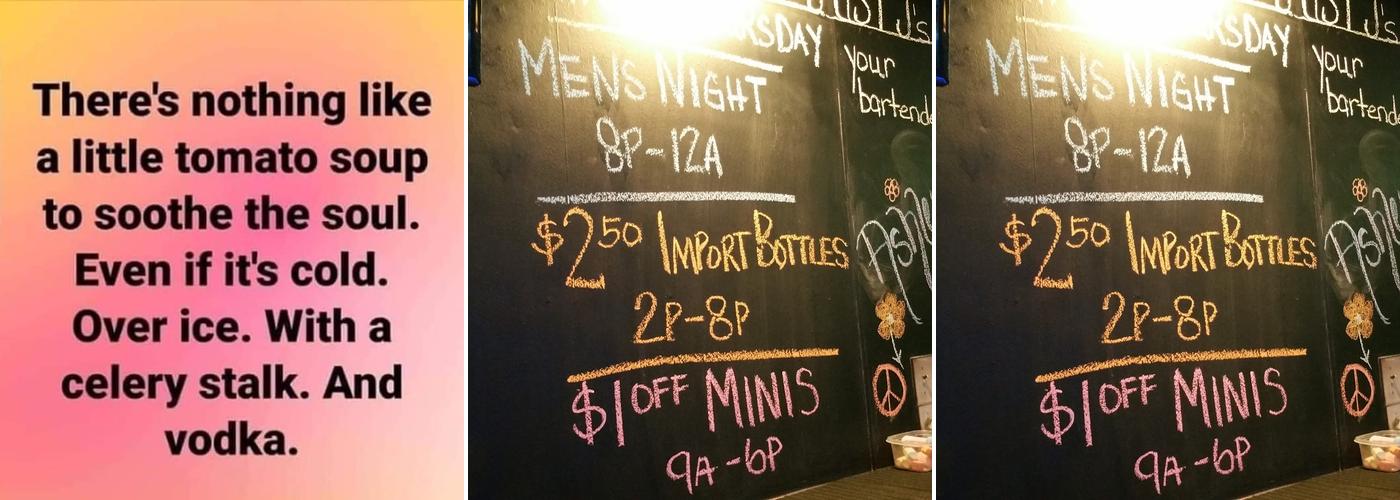 There's nothing like
a little tomato soup
to soothe the soul.
Even if it's cold.
Over ice. With a
celery stalk. And
vodka.
MENS NIGHT
8P-12A
$2.50 IMPORT BOTTLES
2P-8P
$1 OFF MINIS
9A-6P
your
MENS NIGHT
8P-12A
$2.50 IMPORT BOTTLES
2P-8P
$1 OFF MINIS
9A-6P
your